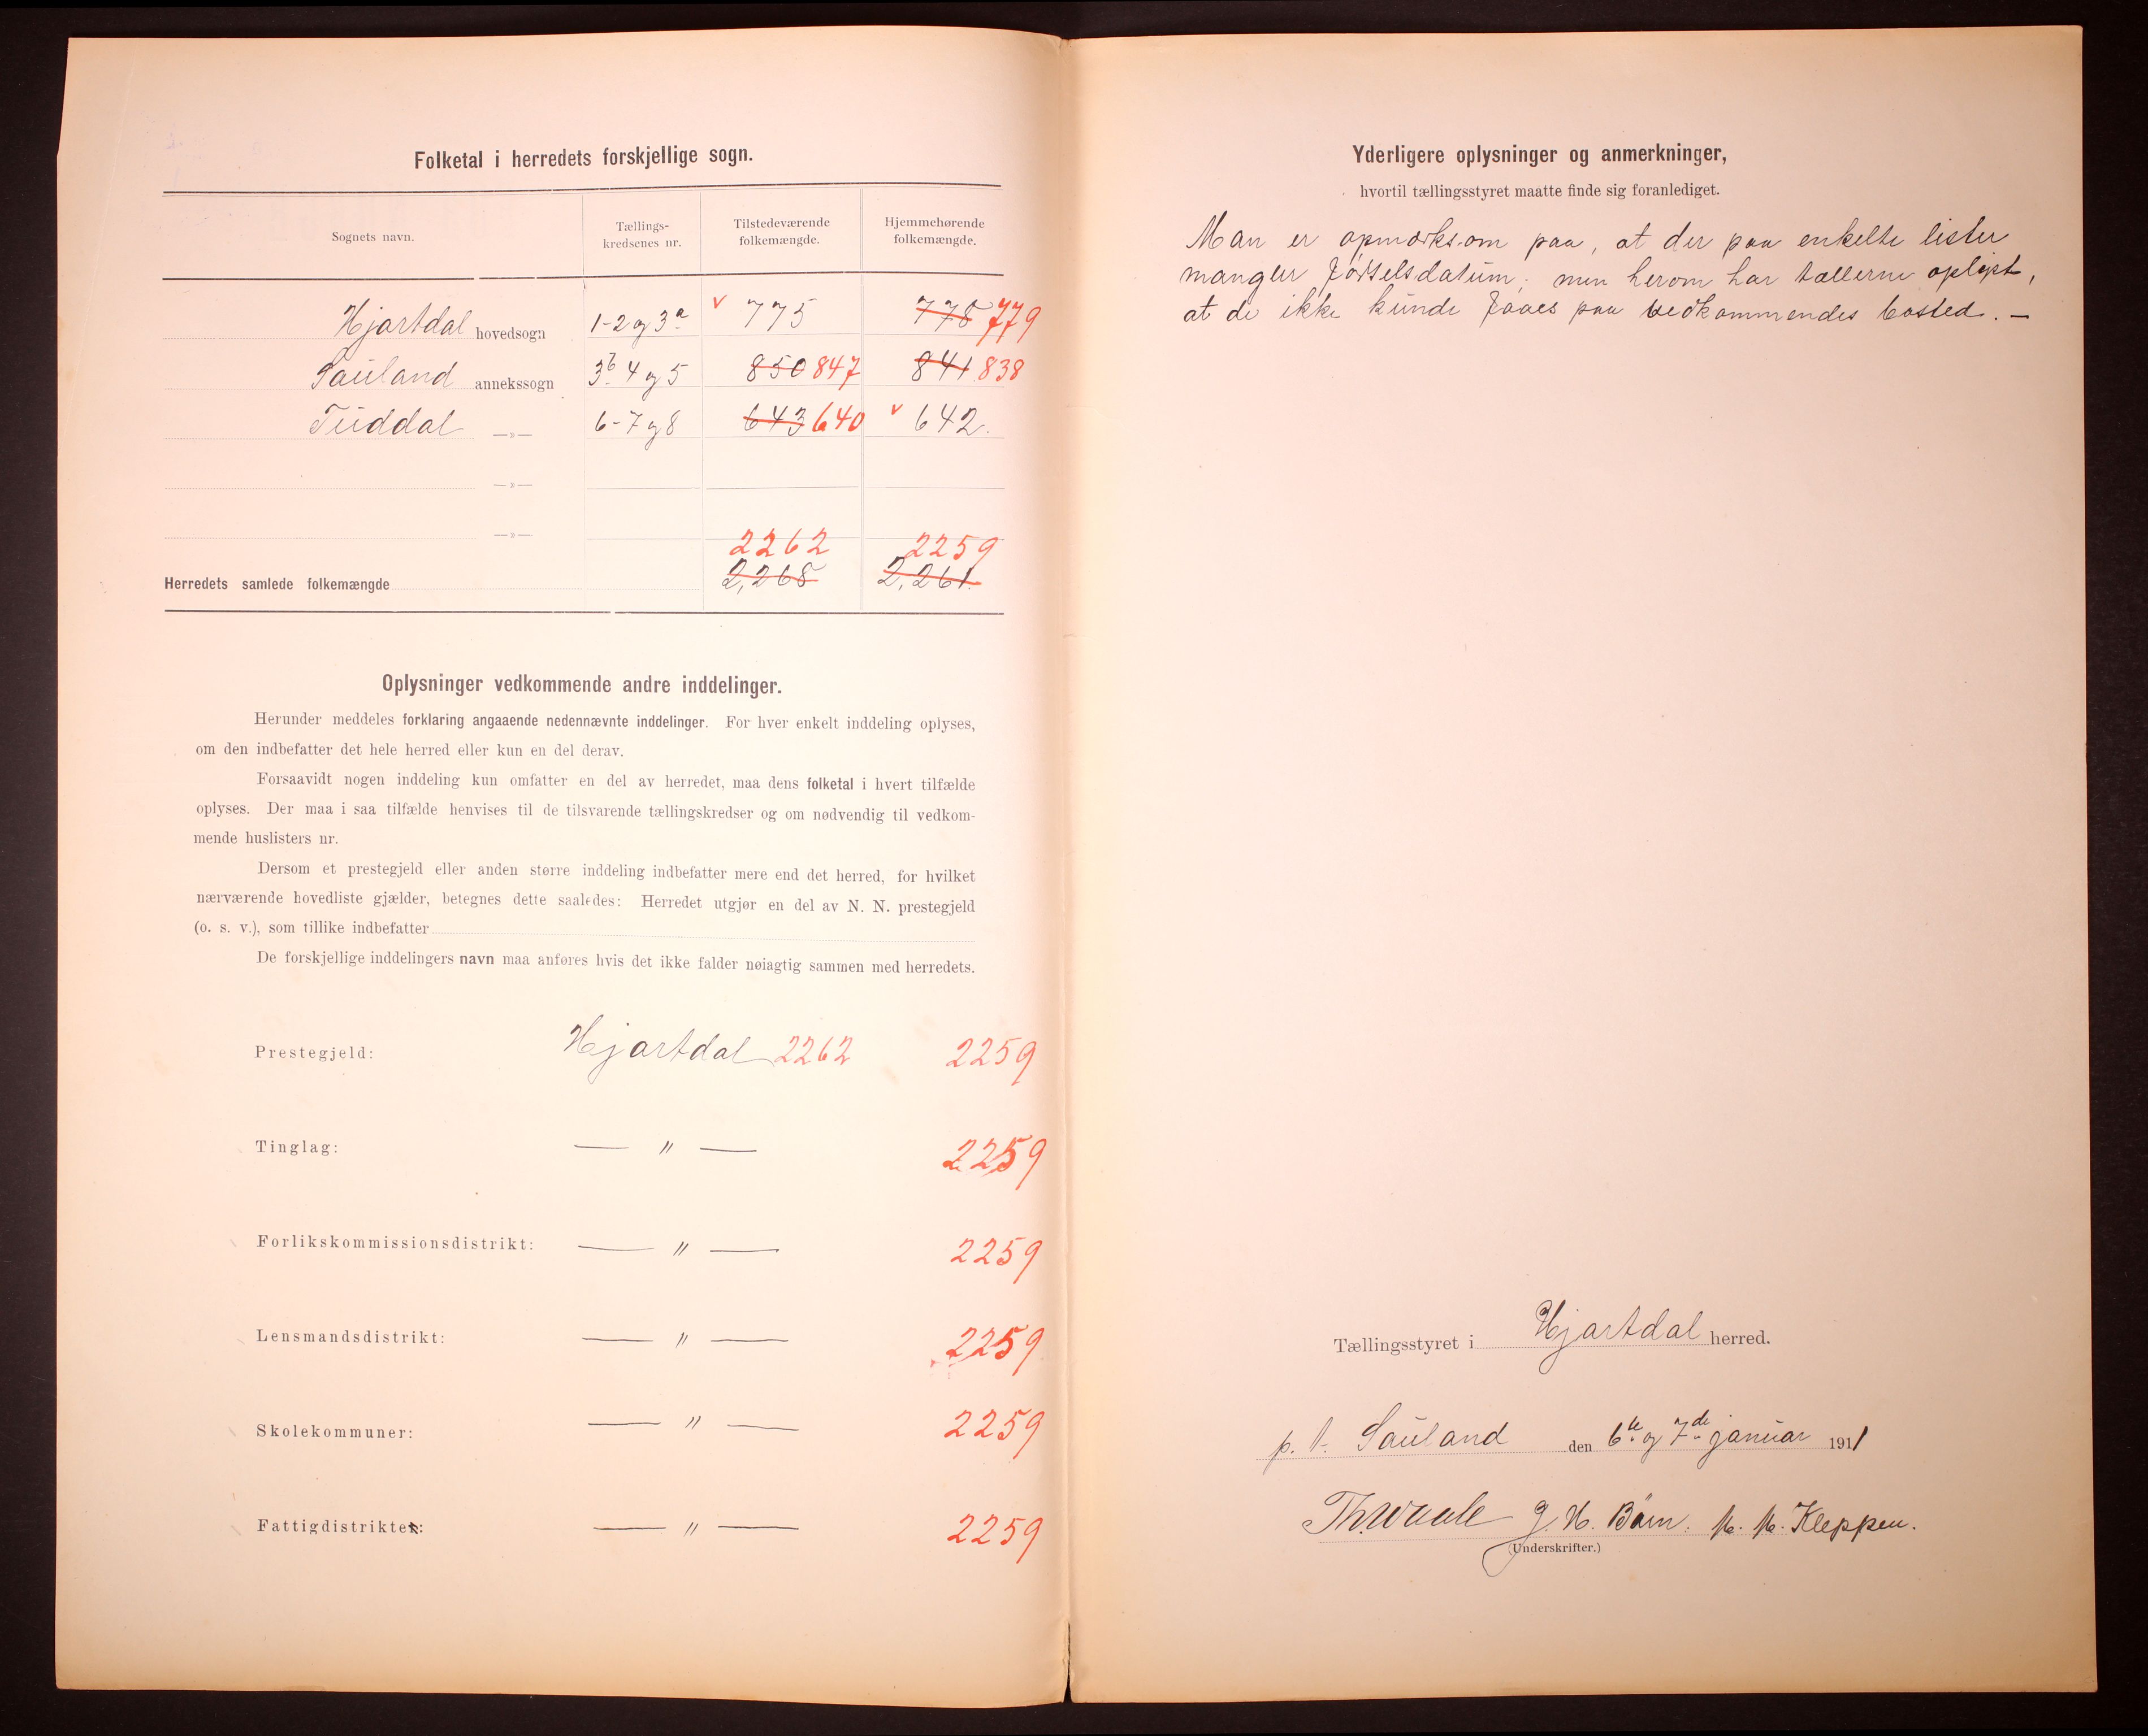 Folketal i herredets forskjellige sogn.
Sognets navn. Tællings-kredsenes nr. Tilstedeværende folkemængde. Hjemmehørende folkemængde.
Hjartdal hovedsogn 1-2 og 3a v 775 778 779
Sauland annekssogn 3b 4 og 5 850 847 841 838
Tuddal —»— 6-7 og 8 643 640 v 642.
—»—
—»—
2262 2259
Herredets samlede folkemængde 2,268 2,261.
Oplysninger vedkommende andre inddelinger.
Herunder meddeles forklaring angaaende nedennævnte inddelinger. For hver enkelt inddeling oplyses,
om den indbefatter det hele herred eller kun en del derav.
Forsaavidt nogen inddeling kun omfatter en del av herredet, maa dens folketal i hvert tilfælde
oplyses. Der maa i saa tilfælde henvises til de tilsvarende tællingskredser og om nødvendig til vedkom-
mende huslisters nr.
Dersom et prestegjeld eller anden større inddeling indbefatter mere end det herred, for hvilket
nærværende hovedliste gjælder, betegnes dette saaledes: Herredet utgjør en del av N. N. prestegjeld
(o. s. v.), som tillike indbefatter
De forskjellige inddelingers navn maa anføres hvis det ikke falder nøiagtig sammen med herredets.
Prestegjeld: Hjartdal 2262 2259
Tinglag: — " — 2259
Forlikskommissionsdistrikt: — " — 2259
Lensmandsdistrikt: — " — 2259
Skolekommuner: — " — 2259
Fattigdistrikter: — " — 2259
Yderligere oplysninger og anmerkninger,
hvortil tællingsstyret maatte finde sig foranlediget.
Man er opmerksom paa, at der paa enkelte lister
mangler fødselsdatum; men herom har tællerne oplyst,
at de ikke kunde faaes paa vedkommendes bosted. —
Tællingsstyret i Hjartdal herred.
p. t. Sauland den 6te og 7de januar 1911
Th. Waale G. H. Bøen. M. M. Kleppen.
(Underskrifter.)